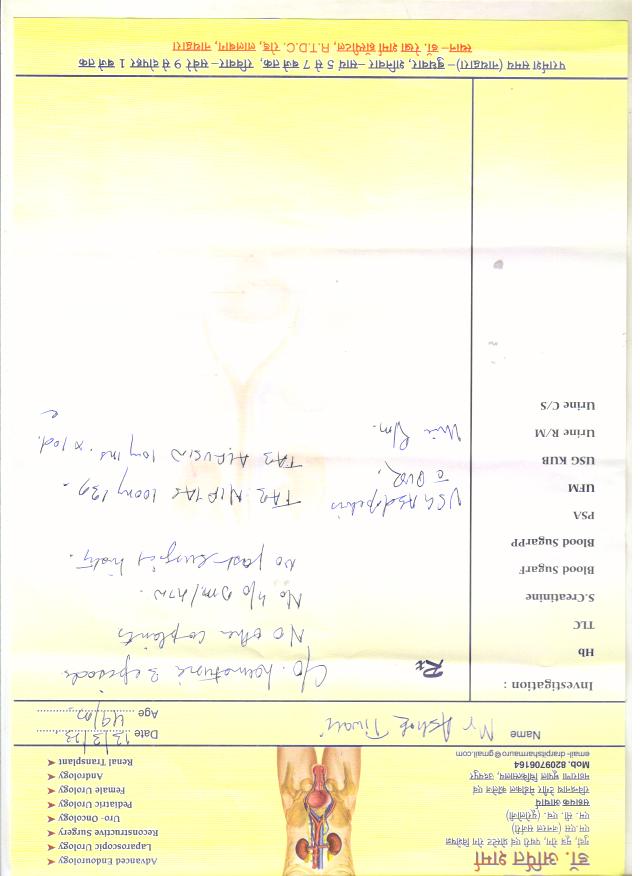 डॉ. अर्पित शर्मा
गुर्दा, मूत्र रोग, पथरी एवं प्रोस्टेट रोग विशेषज्ञ
एम.एस (जनरल सर्जरी)
एम. सी. एच. (यूरोलोजी)
सहायक आचार्य
रविन्द्रनाथ टैगौर मेडीकल कॉलेज एवं
महाराणा भूपाल चिकित्सालय, उदयपुर
Mob. 8209706164
email- drarpitsharmauro@gmail.com
Advanced Endourology
Laparoscopic Urology
Reconstructive Surgery
Uro- Oncology
Pediatric Urology
Female Urology
Andrology
Renal Transplant
Name Mr Ashok Tiwari
Date 13/3/23
Age 49/m
Investigation :
Hb
TLC
S.Creatinine
Blood SugarF
Blood SugarPP
PSA
UFM
USG KUB
Urine R/M
Urine C/S
Rx
C/O. hematuria 3 episodes
No other complaints
No h/o DM/HTN.
No past surgical history.
USG Abd/pelvis
c PVR,
Urine R/m.
TAB NIFTAS 100mg
TAB ALFUSIN 10mg x 10d.
परामर्श समय (नाथद्वारा)– बुधवार, शनिवार–सायं 5 से 7 बजे तक, रविवार–सवेरे 9 से दोपहर 1 बजे तक
स्थान– डॉ. रेखा शर्मा हॉस्पीटल, R.T.D.C. रोड़, लालबाग, नाथद्वारा